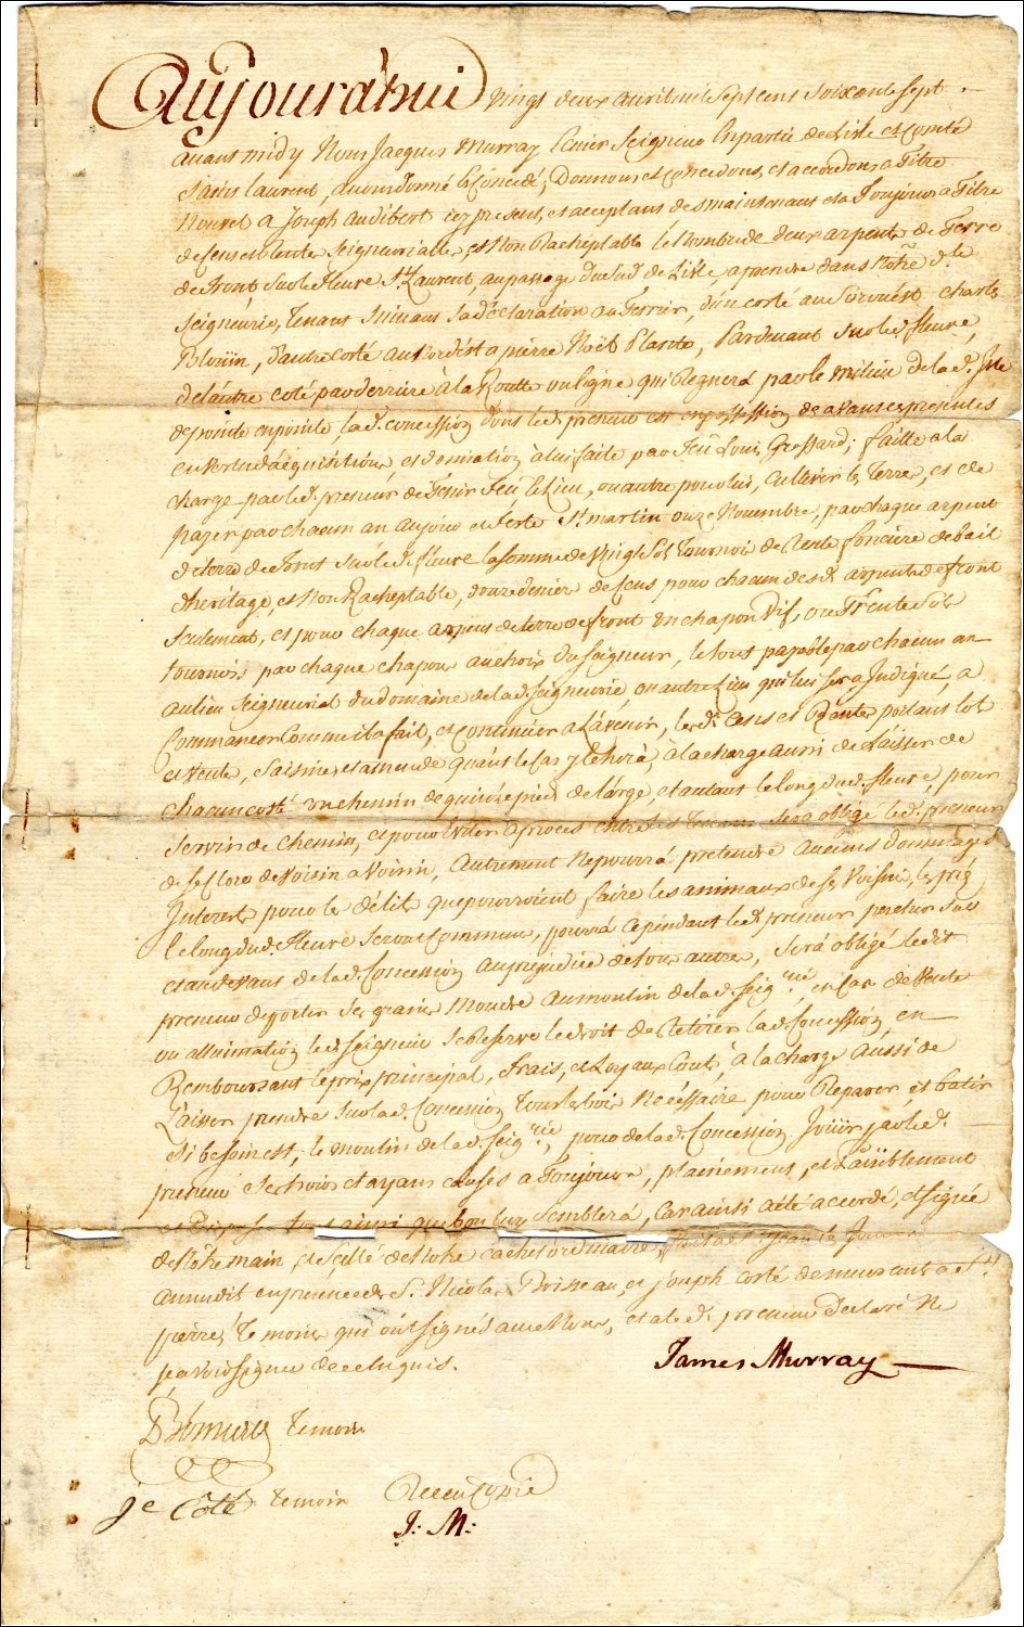 Aujourd'huy vingt deux avril mil sept cens soixante sept
avant midy Nous Jacques Murray Ecuier Seigneur En partie de l'isle et comté
Saint laurent, avons donné et Concedé, Donnons et concedons, et accordons a Titre
Nouvel a Joseph audibert icy present, et acceptant des maintenant et a Toujours a Titre
de Cens et Rentes Seigneurialles, et Non Racheptable le Nombre de deux arpents de Terre
de front sur le fleuve St. Laurent, au passage du Sud de L'isle, a prendre dans Notre de. lte
Seigneurie, Tenant suivant sa déclaration au Terrier, d'un costé au Sorouëst Charles
Blouïn, d'autre costé au Nordést a pierre Noël Plante, Pardevant sur led. fleuve,
de l'autre coté par derriere à la Routte ou ligne qui Regnera par le milieu de la d. Isle
de pointe en pointe, la d. concession dont led. preneur est en possession de avant ces presentes
en vertu d'acquisition, et donnation à lui faite par feu Louis Grossard; faitte a la
charge par led. preneur de Tenir feu et Lieu, ou autre pour lui, Cultiver les Terres, et de
payer par chacun an au jour et feste St. martin onze Novembre, par chaque arpent
de terre de front sur led. fleuve la somme de Vingt Sol Tournois de Rente fonciere de bail
d'heritage, et Non Racheptable, douze denier de Cens pour chacun desd. arpents de front
Seulement, et pour chaque arpens de terre de front un chapon Vif, ou Trente Sols
tournois par chaque chapon au choix du Seigneur, le tout payable par chacun an
au lieu Seigneurial du domaine de la d. Seigneurie, ou autre Lieu qui lui sera Indiqué, a
Commancer Comme il a fait, et continuer a l'avenir, lesd. Cens et Rentes portant lot
et vente, Saisine et amende quànt le Cas y Echera, a la charge aussi de Laisser de
chacun costé un chemin de quinze pied de large, et autant le long dud. fleuve, pour
servir de Chemin, et pour Eviter a proces entre les sera obligé led. preneur
de se Clore de Voisin a Voisin, autrement Ne pourra pretendre aucuns dommages
Interests pour le délits que pourroient faire les animaux de ses Voisins, les prés
le long dud. fleuve seront Commun, pourrà Cependant led. preneur pescher sur
et au devant de la d. Concession au prejudice de tous autres, Serà obligé ledit
preneur de porter ses grains Moudre au moulin de la d. Seig.rie, en cas de Vente
ou alliennation led. seigneur se Reserve le droit de Retirer la d. Concession, en
Remboursant le prix principal, frais, et Loyaux Couts, à la charge aussi de
Laisser prendre sur la d. Concession tous les bois Nécéssaire pour Reparer, et batir
si besoin est, le moulin de la d. Seig.rie, pour de la d. Concession Jouïr par led.
preneur ses hoirs et ayans causes a Toujours, plainement, et Paisiblement
et Disposer tout ainsi que bon luy Semblera, Car ainsi a été accordé, et signée
de Nôtre main, et scellé de Notre cachet ordinaire,
an audit en presence de S. Nicolas Boisseau, et joseph Coté demeurant a St.
pierre, Temoins qui ont signés avec Nous, et a led. preneur Declaré Ne
sçavoir signer de ce Enquis.
James Murray
temoin
Js. Côté temoin
Receu Copie
J: M: